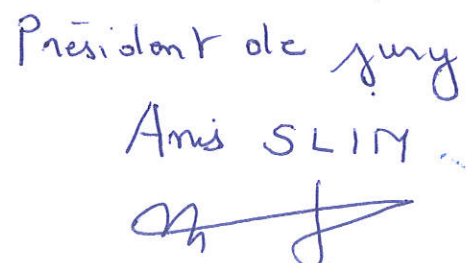 Président de jury
Anis SLIM